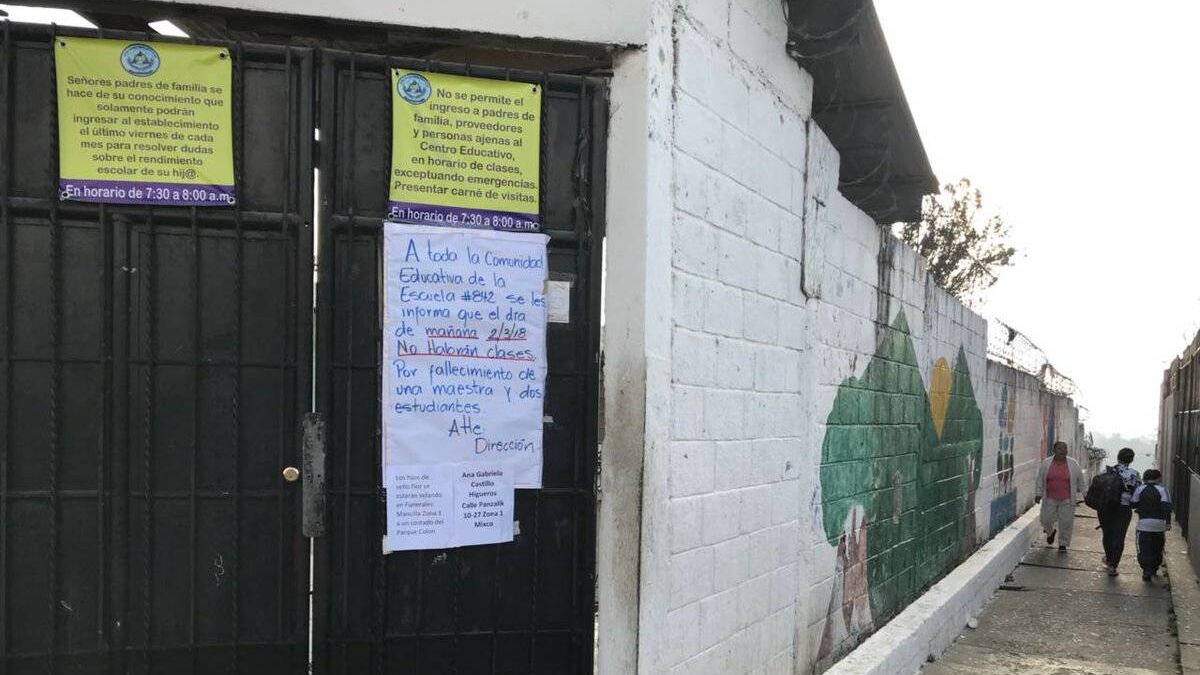 Señores padres de familia se
hace de su conocimiento que
solamente podrán
ingresar al establecimiento
el último viernes de cada
mes para resolver dudas
sobre el rendimiento
escolar de su hij@.
En horario de 7:30 a 8:00 a.m
No se permite el
ingreso a padres de
familia, proveedores
y personas ajenas al
Centro Educativo,
en horario de clases,
exceptuando emergencias.
Presentar carné de visitas.
En horario de 7:30 a 8:00 a.m
A toda la Comunidad
Educativa de la
Escuela #842 se les
informa que el dra
de mañana 2/3/18
No Habrán clases.
Por fallecimiento de
una maestra y dos
estudiantes.
Atte.
Dirección
Los hijos de
seño Flor se
estarán velando
en Funerales
Mancilla Zona 1
a un costado del
Parque Colon
Ana Gabriela
Castillo
Higueros
Calle Panzalik
10-27 Zona 1
Mixco